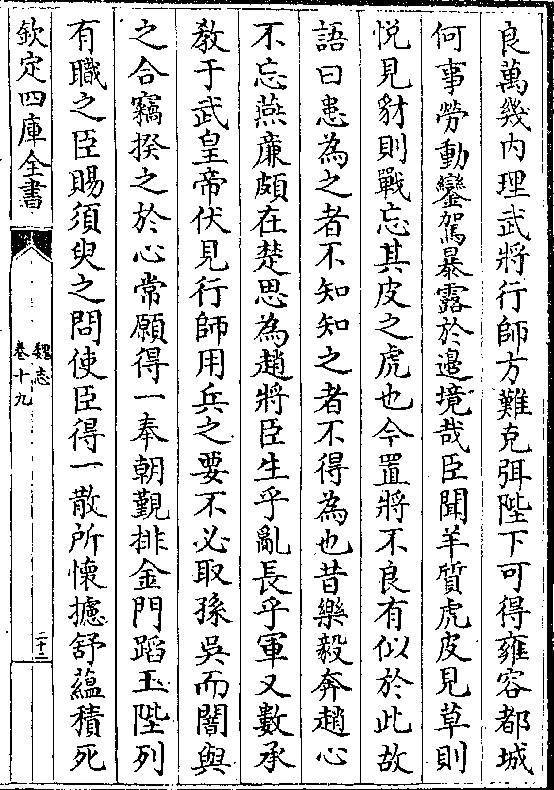 良萬幾内理武將行師方難克弭陛下可得雍容都城
何事勞動鑾駕暴露於邉境哉臣聞羊質虎皮見草則
悦見豺則戰忘其皮之虎也今置將不良有似於此故
語曰患為之者不知知之者不得為也昔樂毅奔趙心
不忘燕亷頗在楚思為趙將臣生乎亂長乎軍又數承
敎于武皇帝伏見行師用兵之要不必取孫吳而闇與
之合竊揆之於心常願得一奉朝覲排金門蹈玉陛列
有職之臣賜須臾之問使臣得一散所懷攄舒蘊積死
欽定四庫全書
魏志
卷十九
二十二